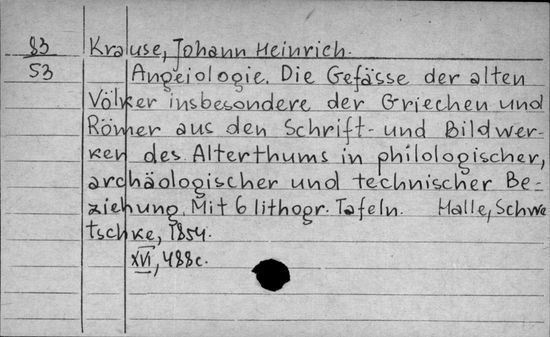 83 Krause, Johann Heinrich.
53 Angeiologie. Die Gefässe der alten
Völker insbesondere der Griechen und
Römer aus den Schrift- und Bildwer-
ken des Alterthums in philologischer,
archäologischer und technischer Be-
ziehung. Mit 6 lithogr. Tafeln. Halle, Schwe
tschke, 1854.
XVI, 488c.